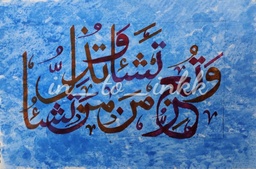 وَتُعِزُّ مَن تَشَاءُ وَتُذِلُّ مَن تَشَاءُ